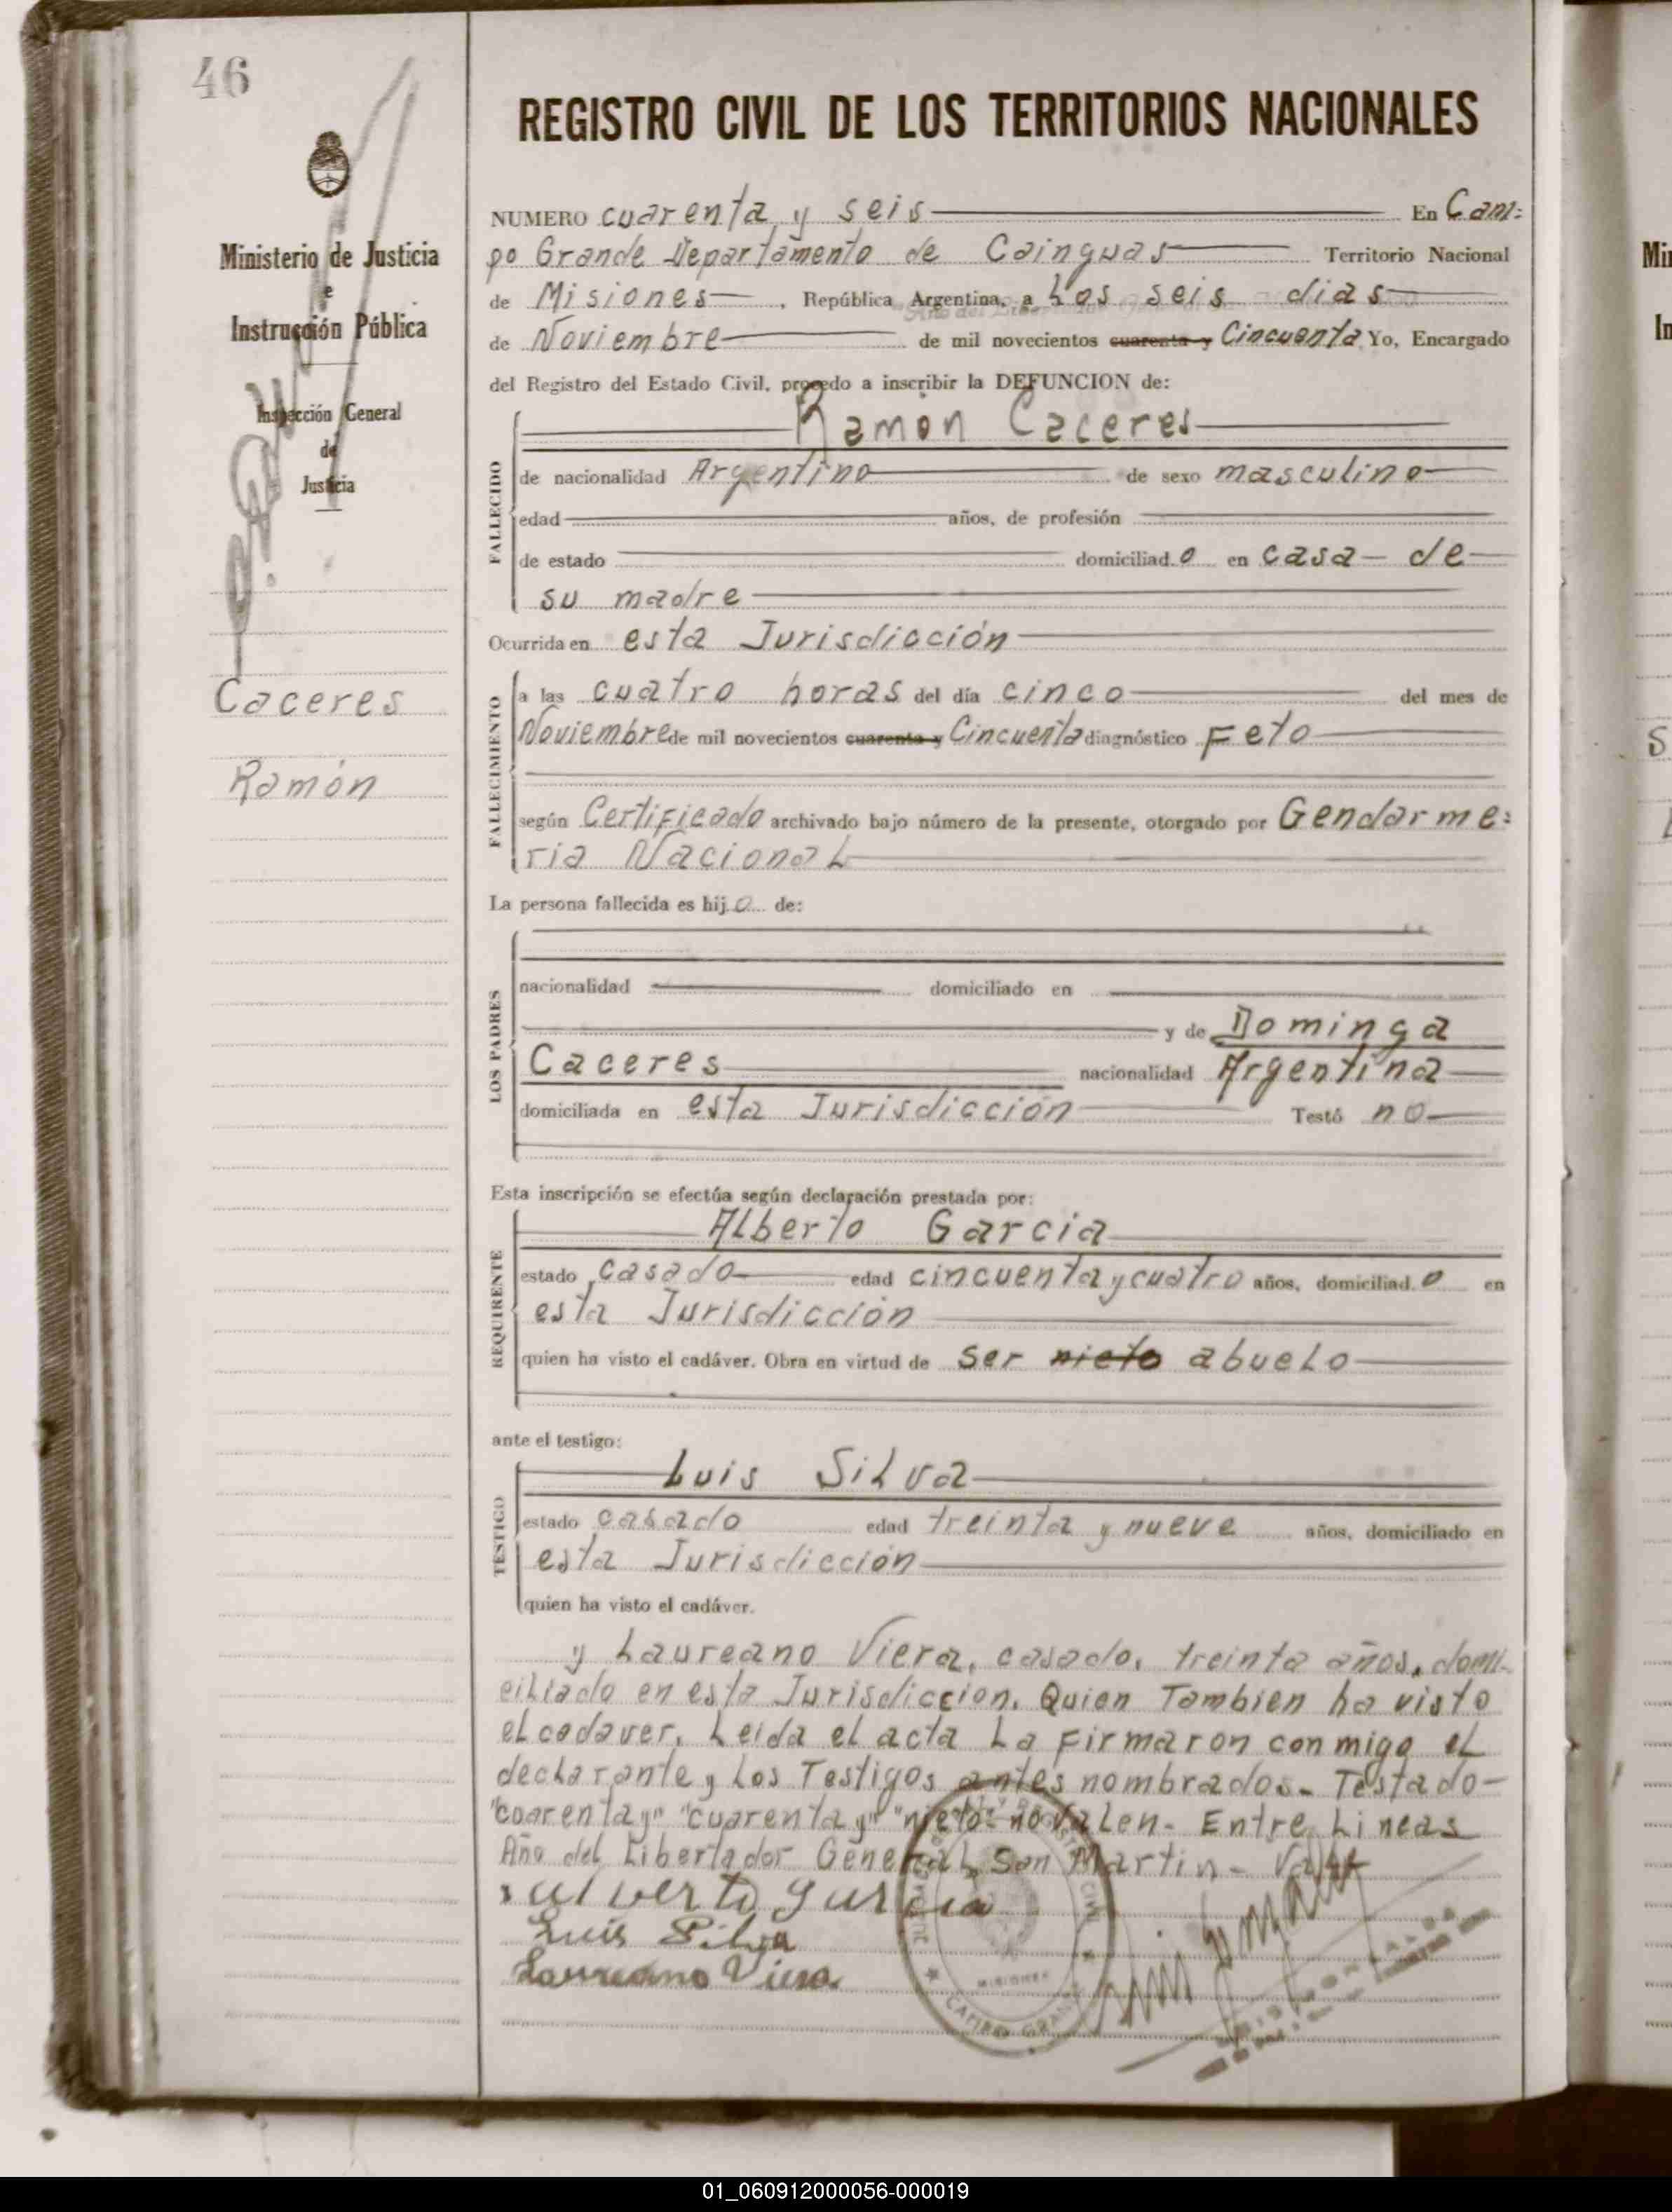 46
Ministerio de Justicia
e
Instrucción Pública
Inspección General
de
Justicia
Caceres
Ramón
REGISTRO CIVIL DE LOS TERRITORIOS NACIONALES
NUMERO cuarenta y seis En Cam:
po Grande Departamento de Cainguas Territorio Nacional
de Misiones, República Argentina, a Los seis dias
Año del Libertador General San
de Noviembre de mil novecientos cuarenta y Cincuenta Yo, Encargado
del Registro del Estado Civil, procedo a inscribir la DEFUNCION de:
Ramón Caceres
FALLECIDO
de nacionalidad Argentino de sexo masculino
edad años, de profesión
de estado domiciliad o en casa de
su madre
Ocurrida en esta Jurisdicción
FALLECIMIENTO
a las cuatro horas del día cinco del mes de
Noviembre de mil novecientos cuarenta y Cincuenta diagnóstico Feto
según Certificado archivado bajo número de la presente, otorgado por Gendarme:
ria Nacional
La persona fallecida es hij o de:
LOS PADRES
nacionalidad domiciliado en
y de Dominga
Caceres nacionalidad Argentina
domiciliada en esta Jurisdicción Testó no
Esta inscripción se efectúa según declaración prestada por:
REQUIRENTE
Alberto Garcia
estado casado edad cincuenta y cuatro años, domiciliad o en
esta Jurisdicción
quien ha visto el cadáver. Obra en virtud de ser nieto abuelo
ante el testigo:
TESTIGO
Luis Silva
estado casado edad treinta y nueve años, domiciliado en
esta Jurisdicción
quien ha visto el cadáver.
y Laureano Viera, casado, treinta años, domi-
ciliado en esta Jurisdiccion. Quien Tambien ha visto
el cadaver. Leida el acta La Firmaron conmigo el
declarante y Los Testigos antes nombrados. Testado-
"cuarenta y" "cuarenta y" "nieto" no valen- Entre Lineas
Año del Libertador General San Martin- Vale
alverto garcia
Luis Silva
Laureano Viera
CIVIL
MISIONES
CAMPO GRANDE
01_060912000056-000019